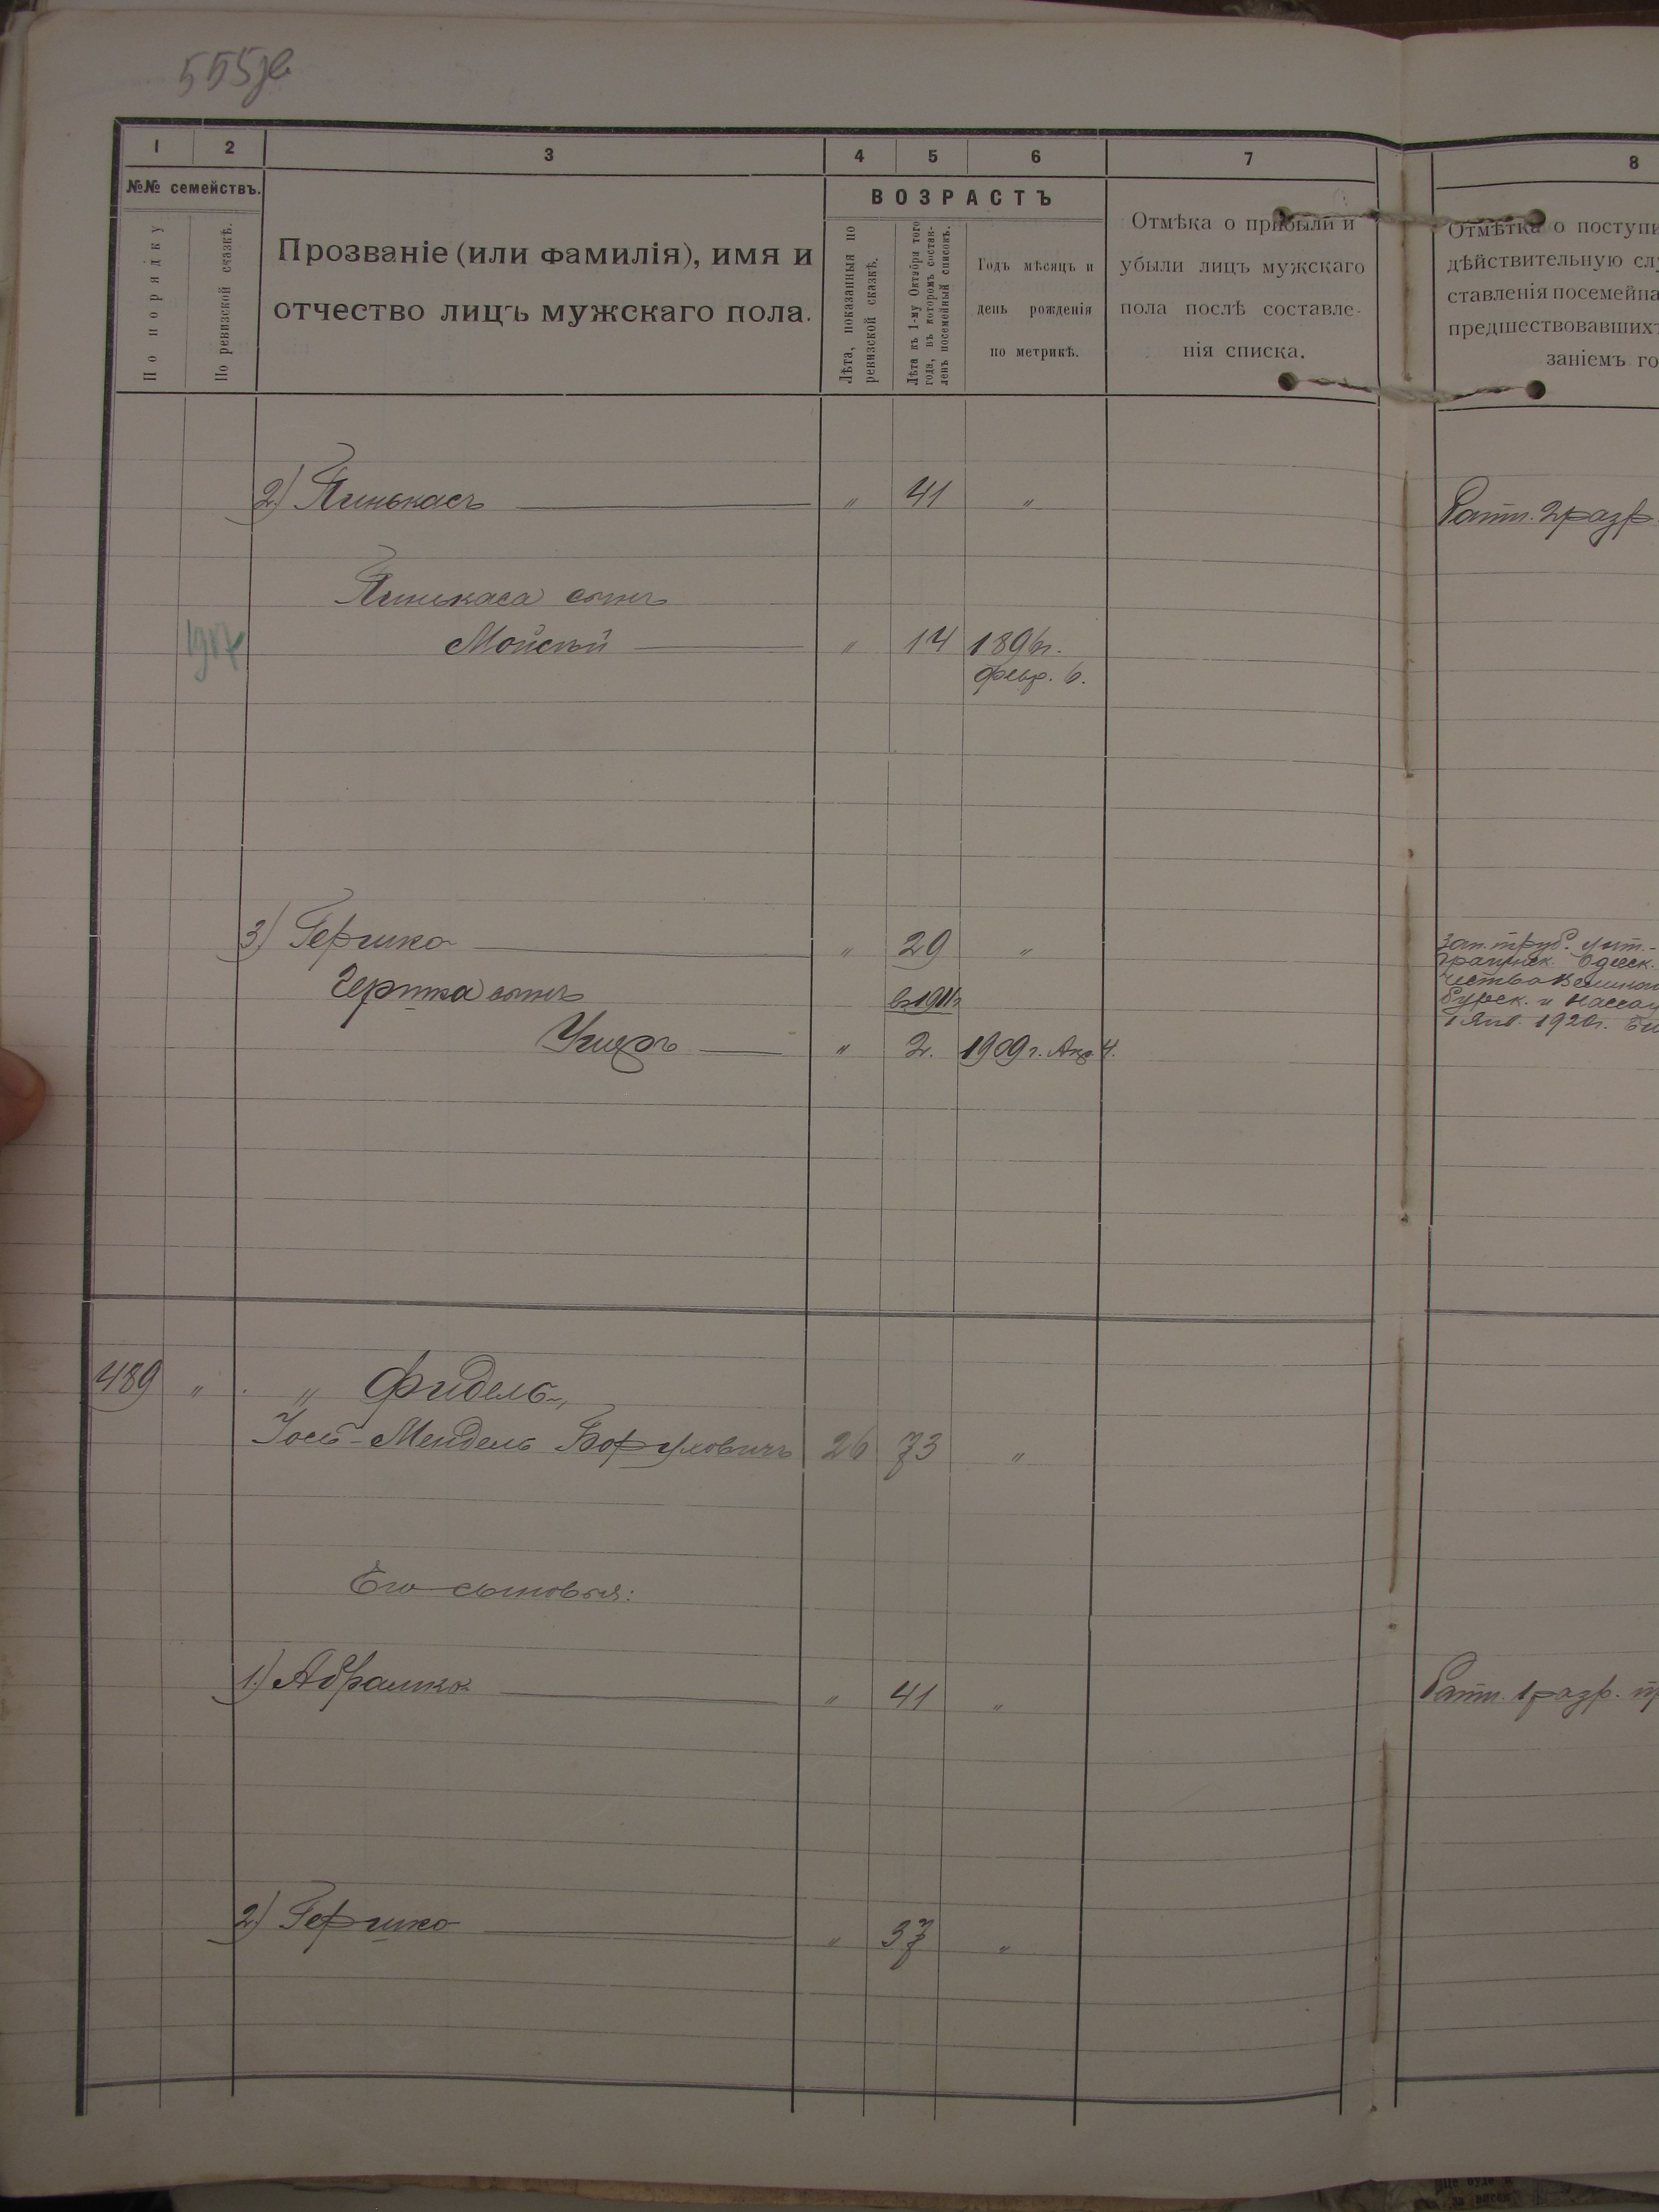 555
1 2 3 4 5 6 7 8
№№ семействъ.
По порядку
По ревизской сказкѣ.
Прозваніе (или фамилія), имя и
отчество лицъ мужскаго пола.
ВОЗРАСТЪ
Лѣта, показанныя по
ревизской сказкѣ.
Лѣта къ 1-му Октября того
года, въ которомъ состав-
ленъ посемейный списокъ.
Годъ мѣсяцъ и
день рожденія
по метрикѣ.
Отмѣка о прибыли и
убыли лицъ мужскаго
пола послѣ составле-
нія списка.
Отмѣтка о поступи
дѣйствительную слу
ставленія посемейна
предшествовавшихъ
заніемъ го
2) Пинькасъ — " 41 "
Ратн. 2 разр.
Пинькаса сынъ
1917 Мойсѣй — " 14 1896 г.
февр. 6.
3) Гершко — " 29 "
Зап. труб.
Одесск.
Гершка сынъ въ 1911 г.
бургск. и Нассау
1 Янв. 1920 г.
Ушеръ — " 2. 1909 г. Апр. 4.
489 " " Фидель,
Іось-Мендель Боруховичъ 26 73 "
Его сыновья:
1) Абрамко — " 41 "
Ратн. 1 разр.
2) Гершко — " 37 "